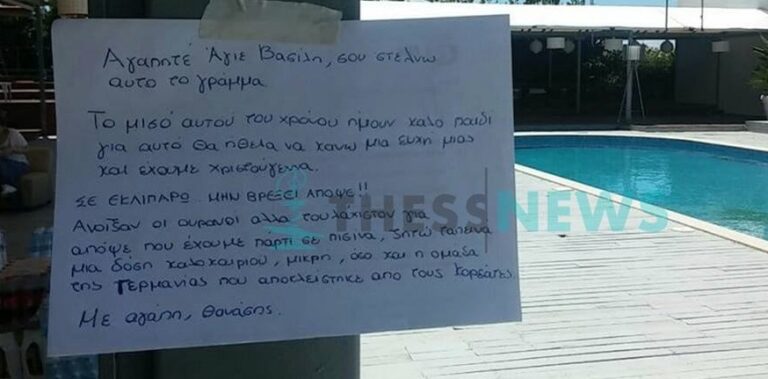 Αγαπητέ Άγιε Βασίλη, σου στέλνω
αυτο το γράμμα.
Το μισό αυτού του χρόνου ήμουν καλο παιδί
για αυτό θα ήθελα να κανω μια ευχή μιας
και έχουμε χριστούγενα.
ΣΕ ΕΚΛΙΠΑΡΩ.. ΜΗΝ ΒΡΕΞΕΙ ΑΠΟΨΕ!!
Ανοιξαν οι ουρανοί αλλα τουλάχιστον για
απόψε που έχουμε πάρτι σε πισίνα, ζητώ ταπεινα
μια δόση καλοκαιριού, μικρή, όσο και η ομαδα
της Γερμανίας που αποκλείστηκε απο τους Κορεάτες.
Με αγάπη, Θανάσης.
THESSNEWS